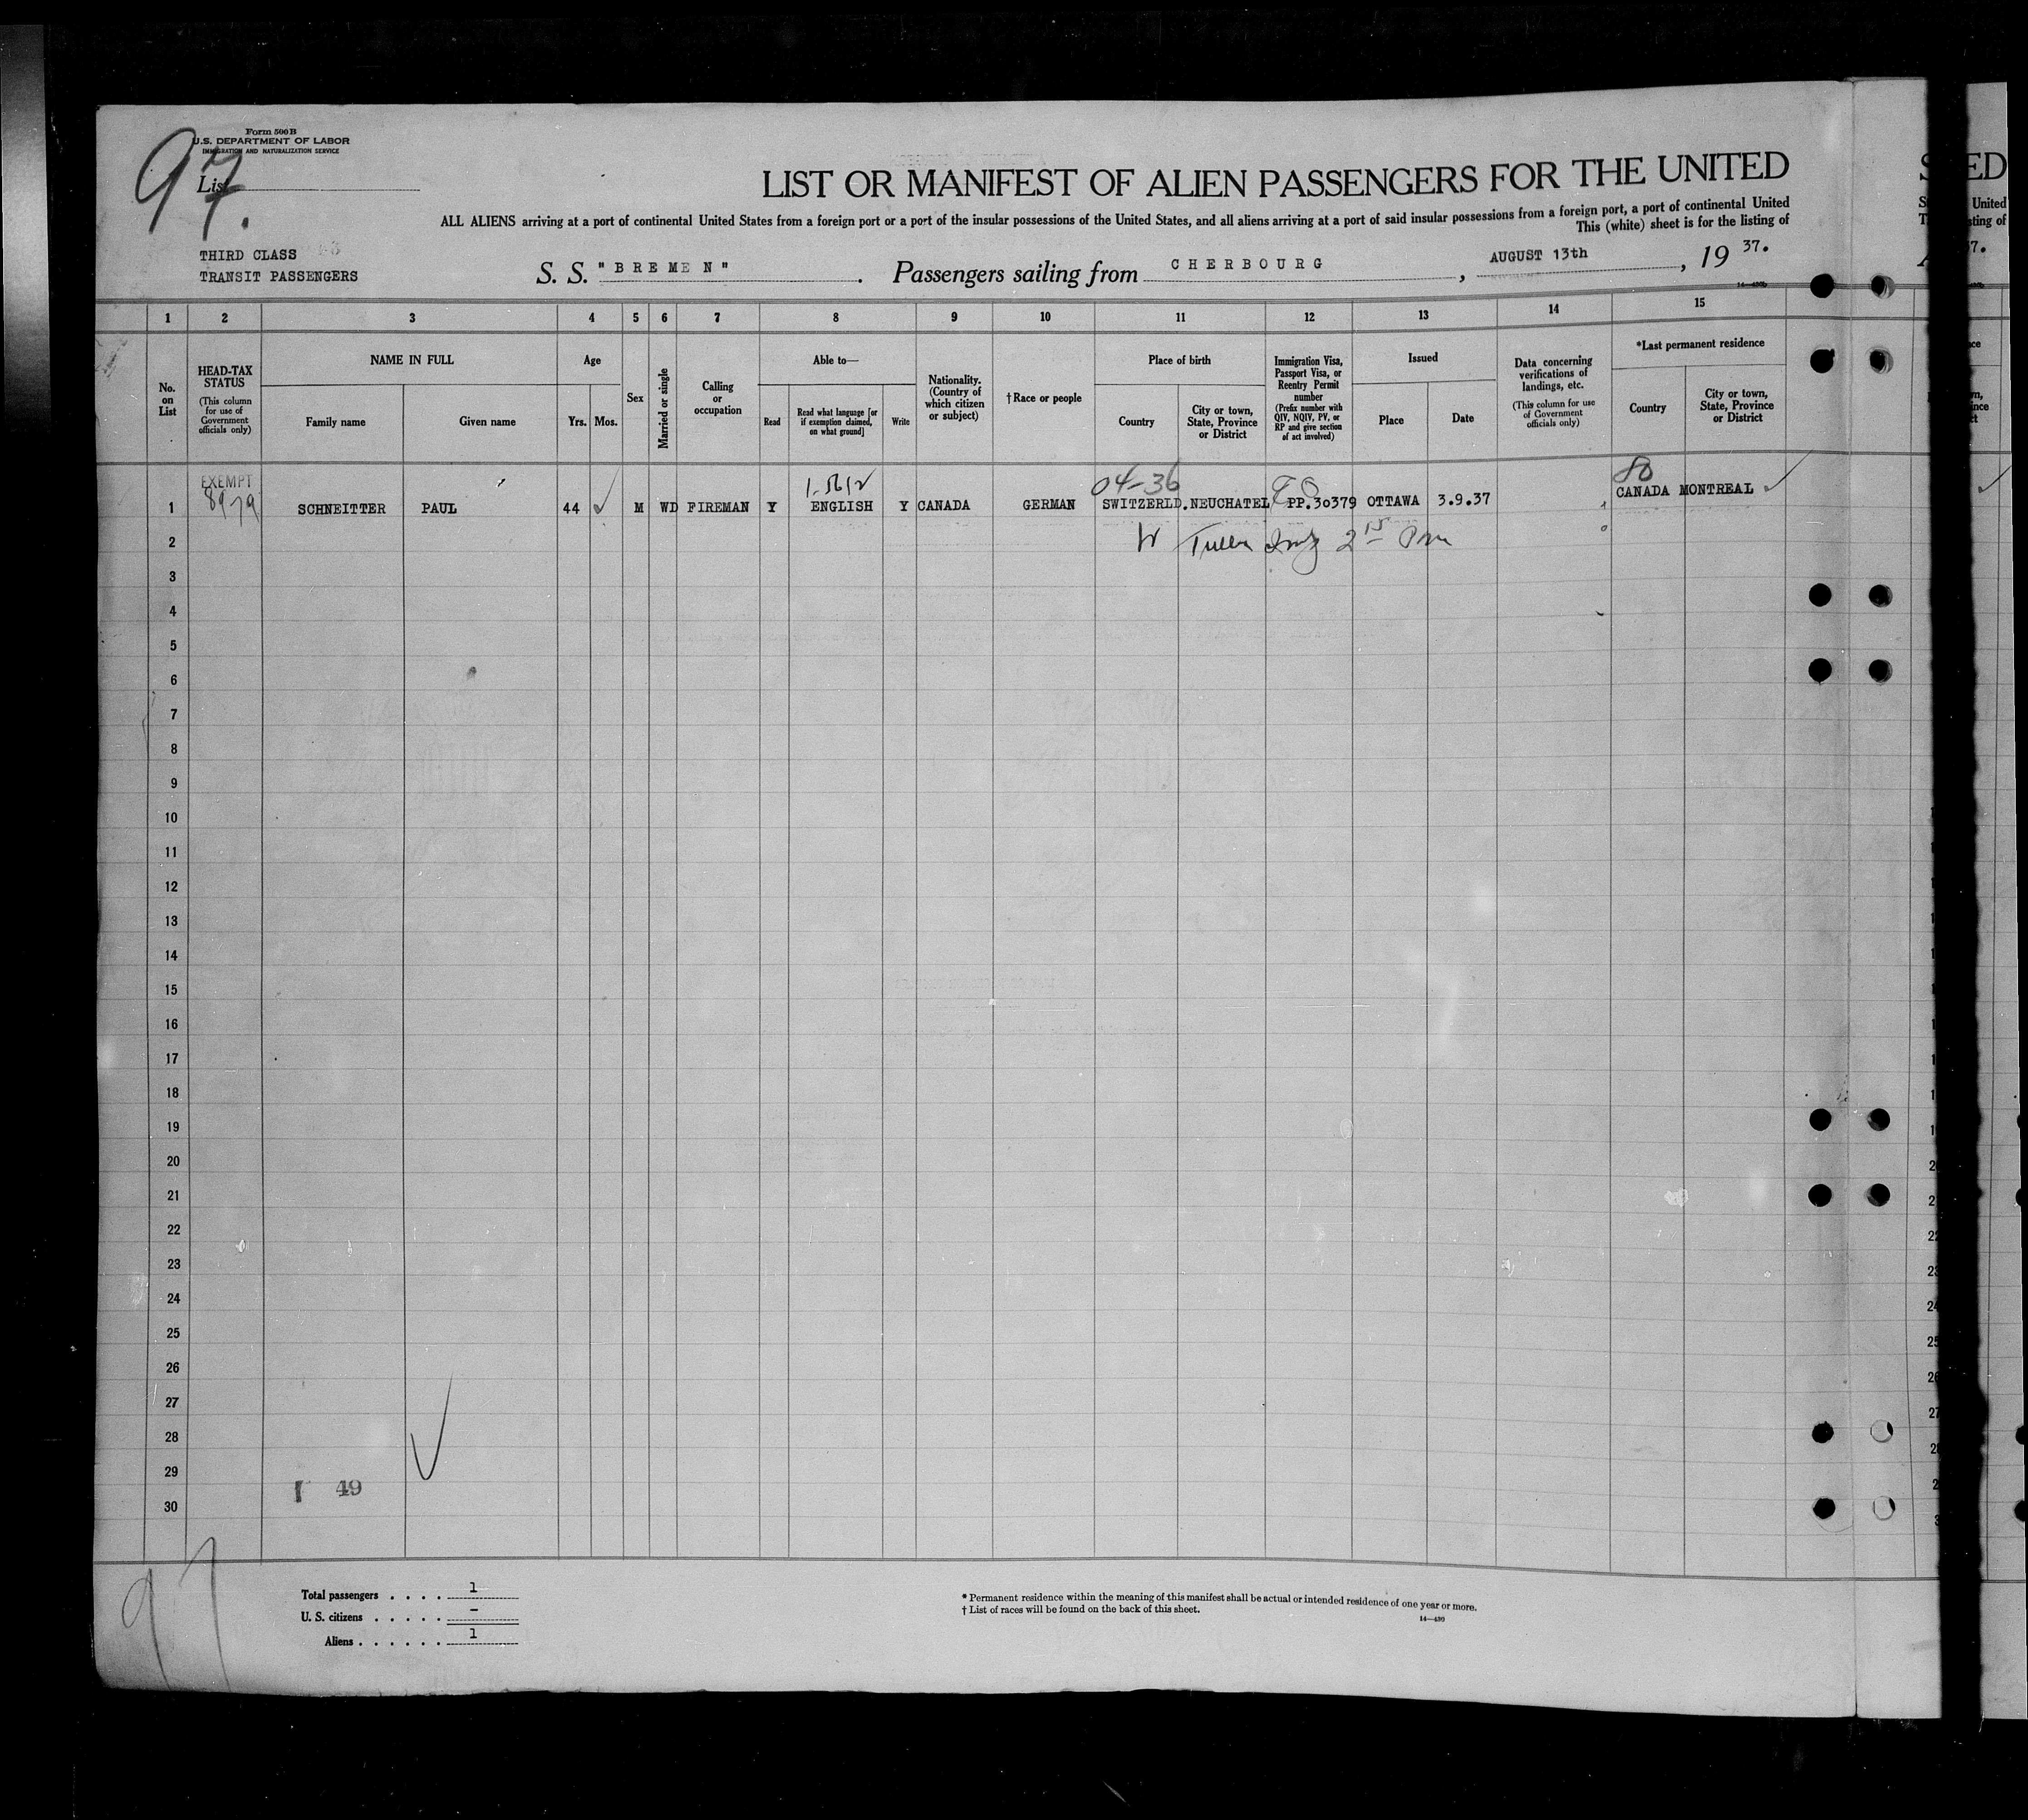 Form 500 B
U.S. DEPARTMENT OF LABOR
IMMIGRATION AND NATURALIZATION SERVICE
97.
List
LIST OR MANIFEST OF ALIEN PASSENGERS FOR THE UNITED
ALL ALIENS arriving at a port of continental United States from a foreign port or a port of the insular possessions of the United States, and all aliens arriving at a port of said insular possessions from a foreign port, a port of continental United
This (white) sheet is for the listing of
THIRD CLASS
TRANSIT PASSENGERS
S. S. "BREMEN". Passengers sailing from CHERBOURG, AUGUST 13th, 19 37.
1 2 3 4 5 6 7 8 9 10 11 12 13 14 15
No. on List
HEAD-TAX STATUS (This column for use of Government officials only)
NAME IN FULL
Family name Given name
Age
Yrs. Mos.
Sex
Married or single
Calling or occupation
Able to—
Read
Read what language [or if exemption claimed, on what ground]
Write
Nationality. (Country of which citizen or subject)
†Race or people
Place of birth
Country
City or town, State, Province or District
Immigration Visa, Passport Visa, or Reentry Permit number (Prefix number with QIV, NQIV, PV, or RP and give section of act involved)
Issued
Place Date
Data concerning verifications of landings, etc. (This column for use of Government officials only)
*Last permanent residence
Country
City or town, State, Province or District
EXEMPT
04-36
80
1 SCHNEITTER PAUL 44 M WD FIREMAN Y ENGLISH Y CANADA GERMAN SWITZERLD. NEUCHATEL PP.30379 OTTAWA 3.9.37 CANADA MONTREAL
2
3
4
5
6
7
8
9
10
11
12
13
14
15
16
17
18
19
20
21
22
23
24
25
26
27
28
29
30
49
97
Total passengers . . . . 1
U. S. citizens . . . . . –
Aliens . . . . . . 1
* Permanent residence within the meaning of this manifest shall be actual or intended residence of one year or more.
† List of races will be found on the back of this sheet.
14—430